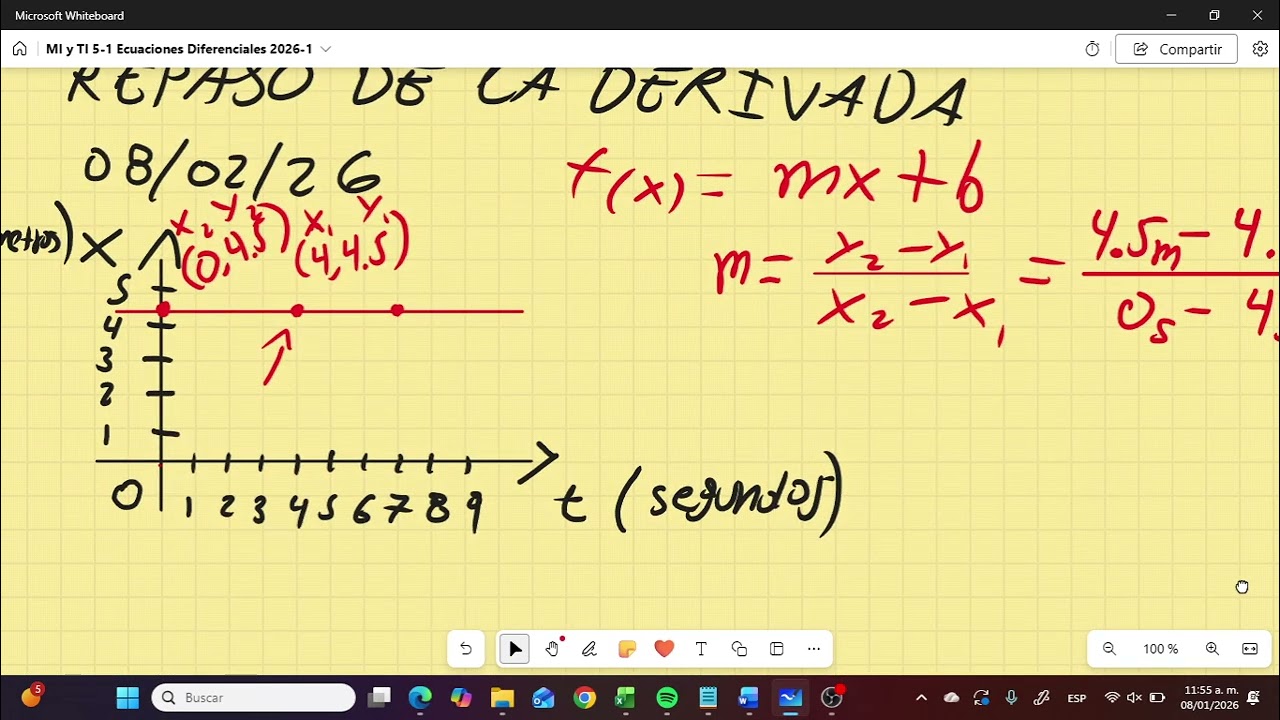 Microsoft Whiteboard
MI y TI 5-1 Ecuaciones Diferenciales 2026-1
Compartir
REPASO DE LA DERIVADA
08/02/26
f(x) = mx + b
X
x₂ y₂ x₁ y₁
(0, 4.5) (4, 4.5)
m = y₂ - y₁ / x₂ - x₁ = 4.5m - 4. / 0s - 4
5
4
3
2
1
0 1 2 3 4 5 6 7 8 9
t (segundos)
100 %
5
Buscar
ESP
11:55 a. m.
08/01/2026